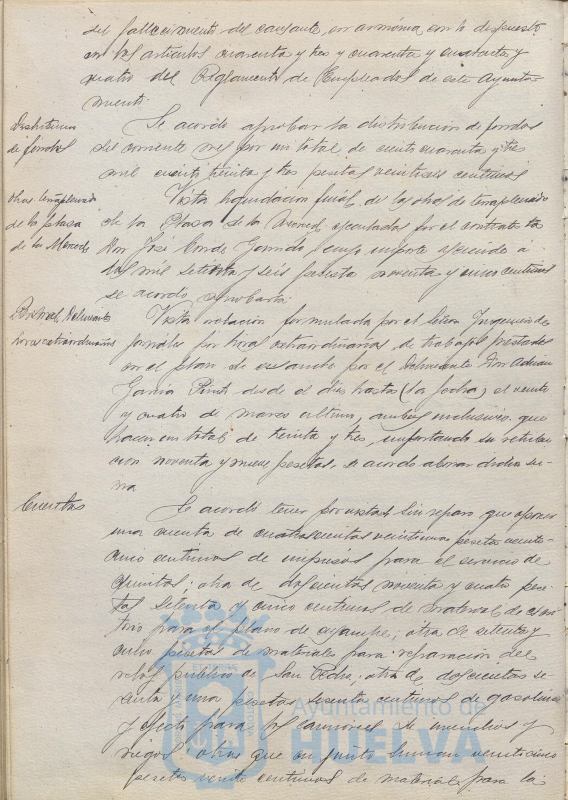 del fallecimiento del causante, en armonia con lo dispuesto
en los articulos cuarenta y tres y cuarenta y cuarenta y
cuatro del Reglamento de Empleados de este Ayunta-
miento.
Distribucion
de fondos
Se acordó aprobar la distribucion de fondos
del corriente mes por un total de ciento cuarenta y tres
mil ciento treinta y tres pesetas veintiseis centimos
Obras terraplenado
de la plaza
de la Merced
Vista liquidacion final de las obras de terraplenado
de la Plaza de la Merced ejecutadas por el contratista
Don José Conde Garrido, cuyo importe asciende a
dos mil setenta y seis pesetas noventa y cinco centimos
se acordó aprobarla.
Delineante
horas extraordinarias
Vista relacion formulada por el Señor Ingeniero de
jornales por horas extraordinarias de trabajos prestados
en el plan de ensanche por el Delineante Don Adrian
Garcia desde el dia hasta (la fecha) el veinte
y cuatro de marzo ultimo, ambos inclusive, que
hacen un total de treinta y tres, importando su retribu-
cion noventa y nueve pesetas, se acordó abonar dicha su-
ma
Cuentas
Se acordó tener por vistas sin reparo que oponer
una cuenta de cuatrocientas veintiuna pesetas veinti-
cinco centimos de impresos para el servicio de
Quintas; otra de doscientas noventa y cuatro pese-
tas setenta y cinco centimos de material de escri-
torio para el plano de ensanche; otra de setenta y
cinco pesetas de materiales para reparacion del
reloj publico de San Pedro; otra de doscientas se-
senta y una pesetas sesenta centimos de gasolina
y efectos para los camiones de incendios y
riegos, otras que en junto suman veinticinco
pesetas veinte centimos de materiales para la
Ayuntamiento de
HUELVA